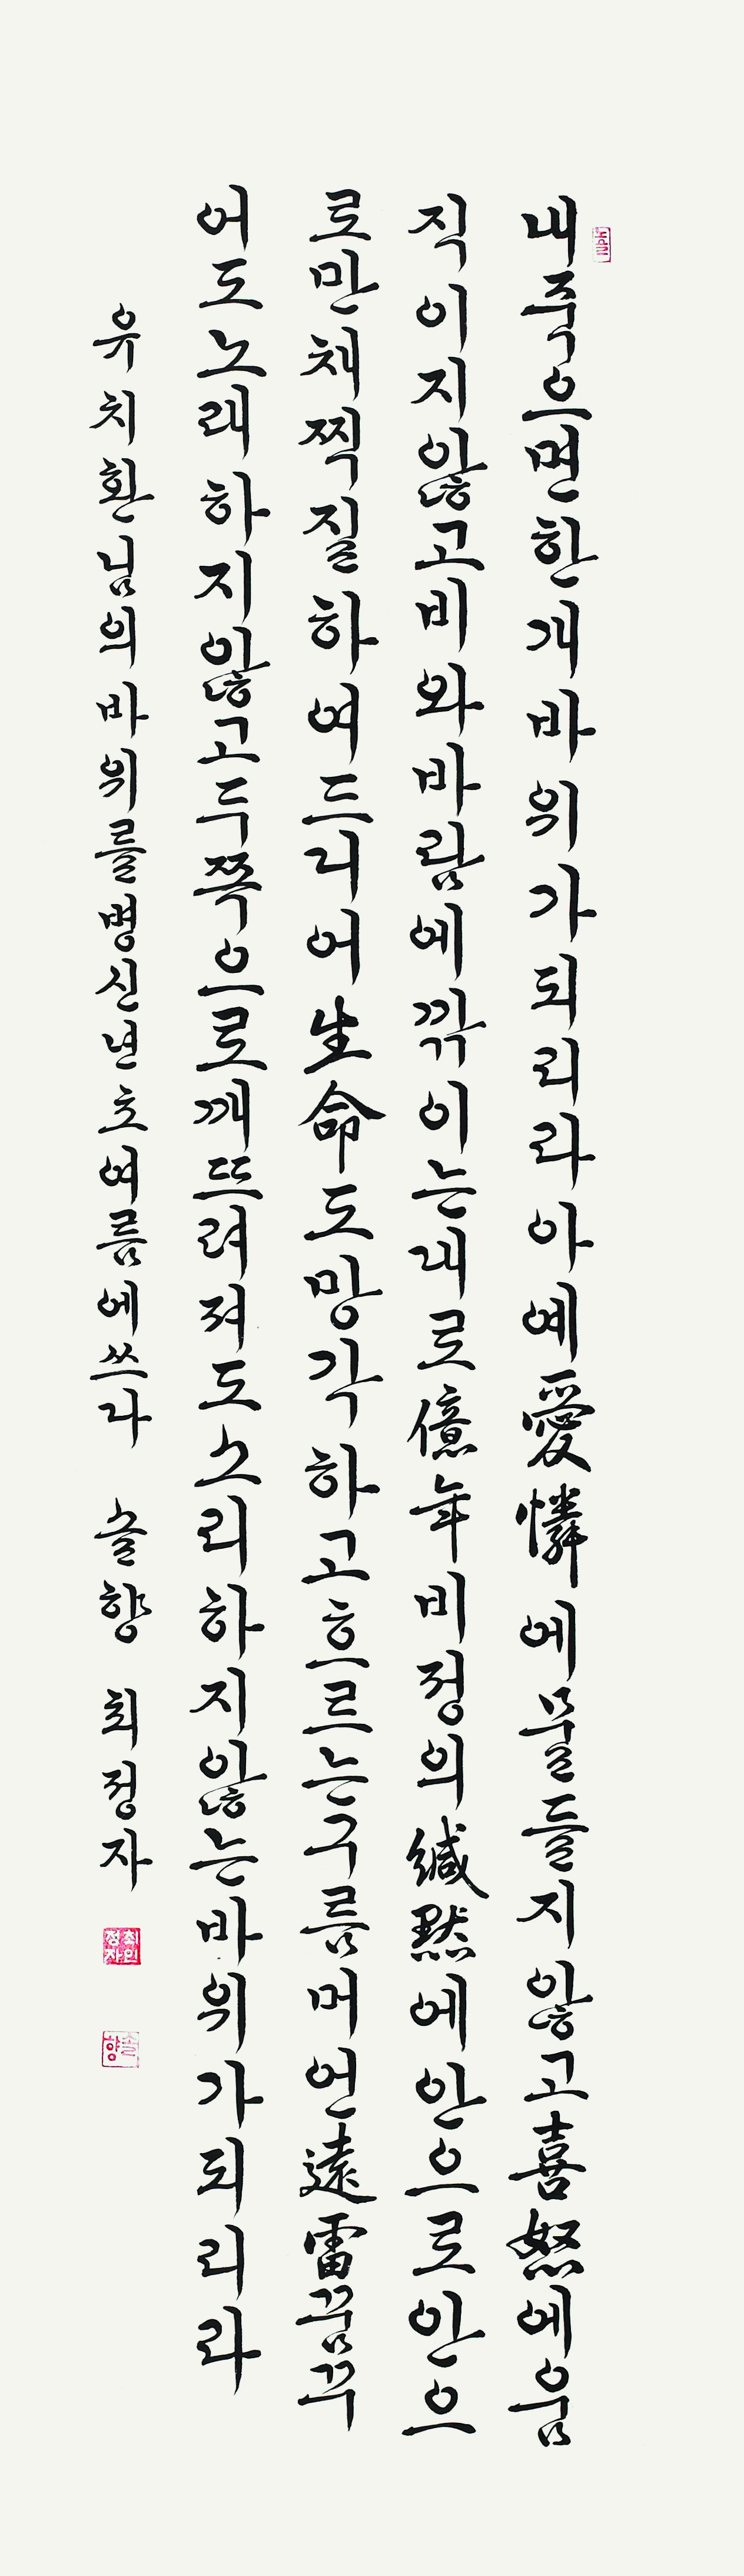 내죽으면한개바위가되리라아예愛憐에물들지않고喜怒에움
직이지않고비와바람에깎이는대로億年비정의緘黙에안으로안으
로만채찍질하여드디어生命도망각하고흐르는구름머언遠雷꿈꾸
어도노래하지않고두쪽으로깨뜨려져도소리하지않는바위가되리라
유치환님의바위를병신년초여름에쓰다 솔향 최정자
최정자인
솔향